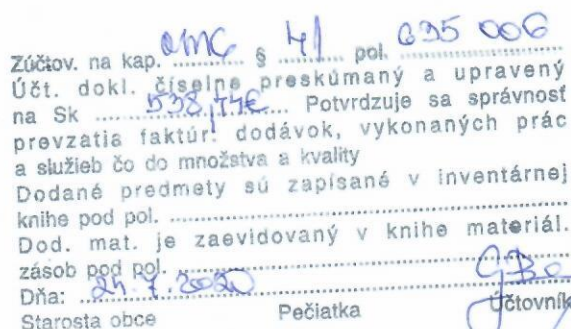 Zúčtov. na kap. 0111 § 41 pol. 635 006
Účt. dokl. číselne preskúmaný a upravený
na Sk 538,44€ Potvrdzuje sa správnosť
prevzatia faktúr. dodávok, vykonaných prác
a služieb čo do množstva a kvality
Dodané predmety sú zapísané v inventárnej
knihe pod pol. ....................
Dod. mat. je zaevidovaný v knihe materiál.
zásob pod pol. ....................
Dňa: 24.7.2020
Starosta obce Pečiatka Účtovník